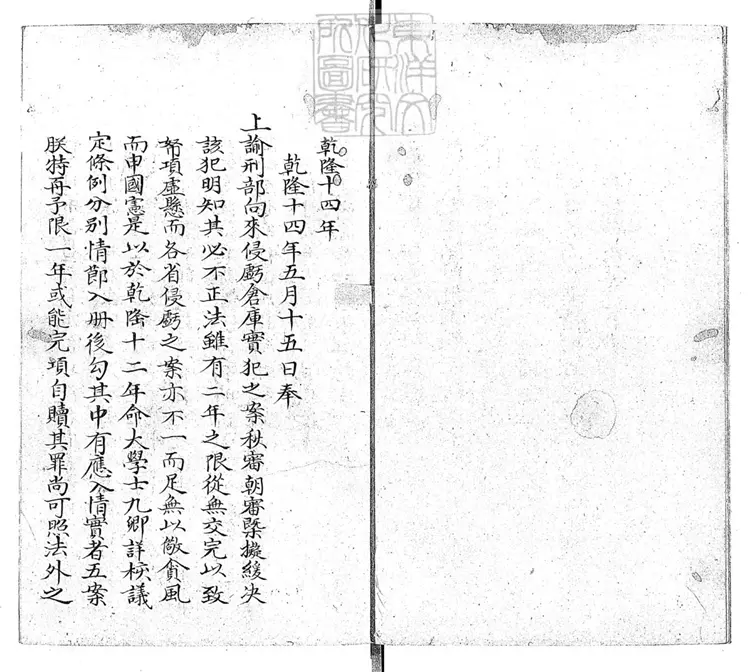 乾隆十四年
乾隆十四年五月十五日奉
上諭刑部向來侵虧倉庫實犯之案秋審朝審槩擬緩决
該犯明知其必不正法雖有二年之限從無交完以致
帑項虛懸而各省侵虧之案亦不一而足無以儆貪風
而申國憲是以於乾隆十二年命大學士九卿詳核議
定條例分别情節入册後勾其中有應入情實者五案
朕特再予限一年或能完項自贖其罪尚可照法外之
東洋文化研究所圖書